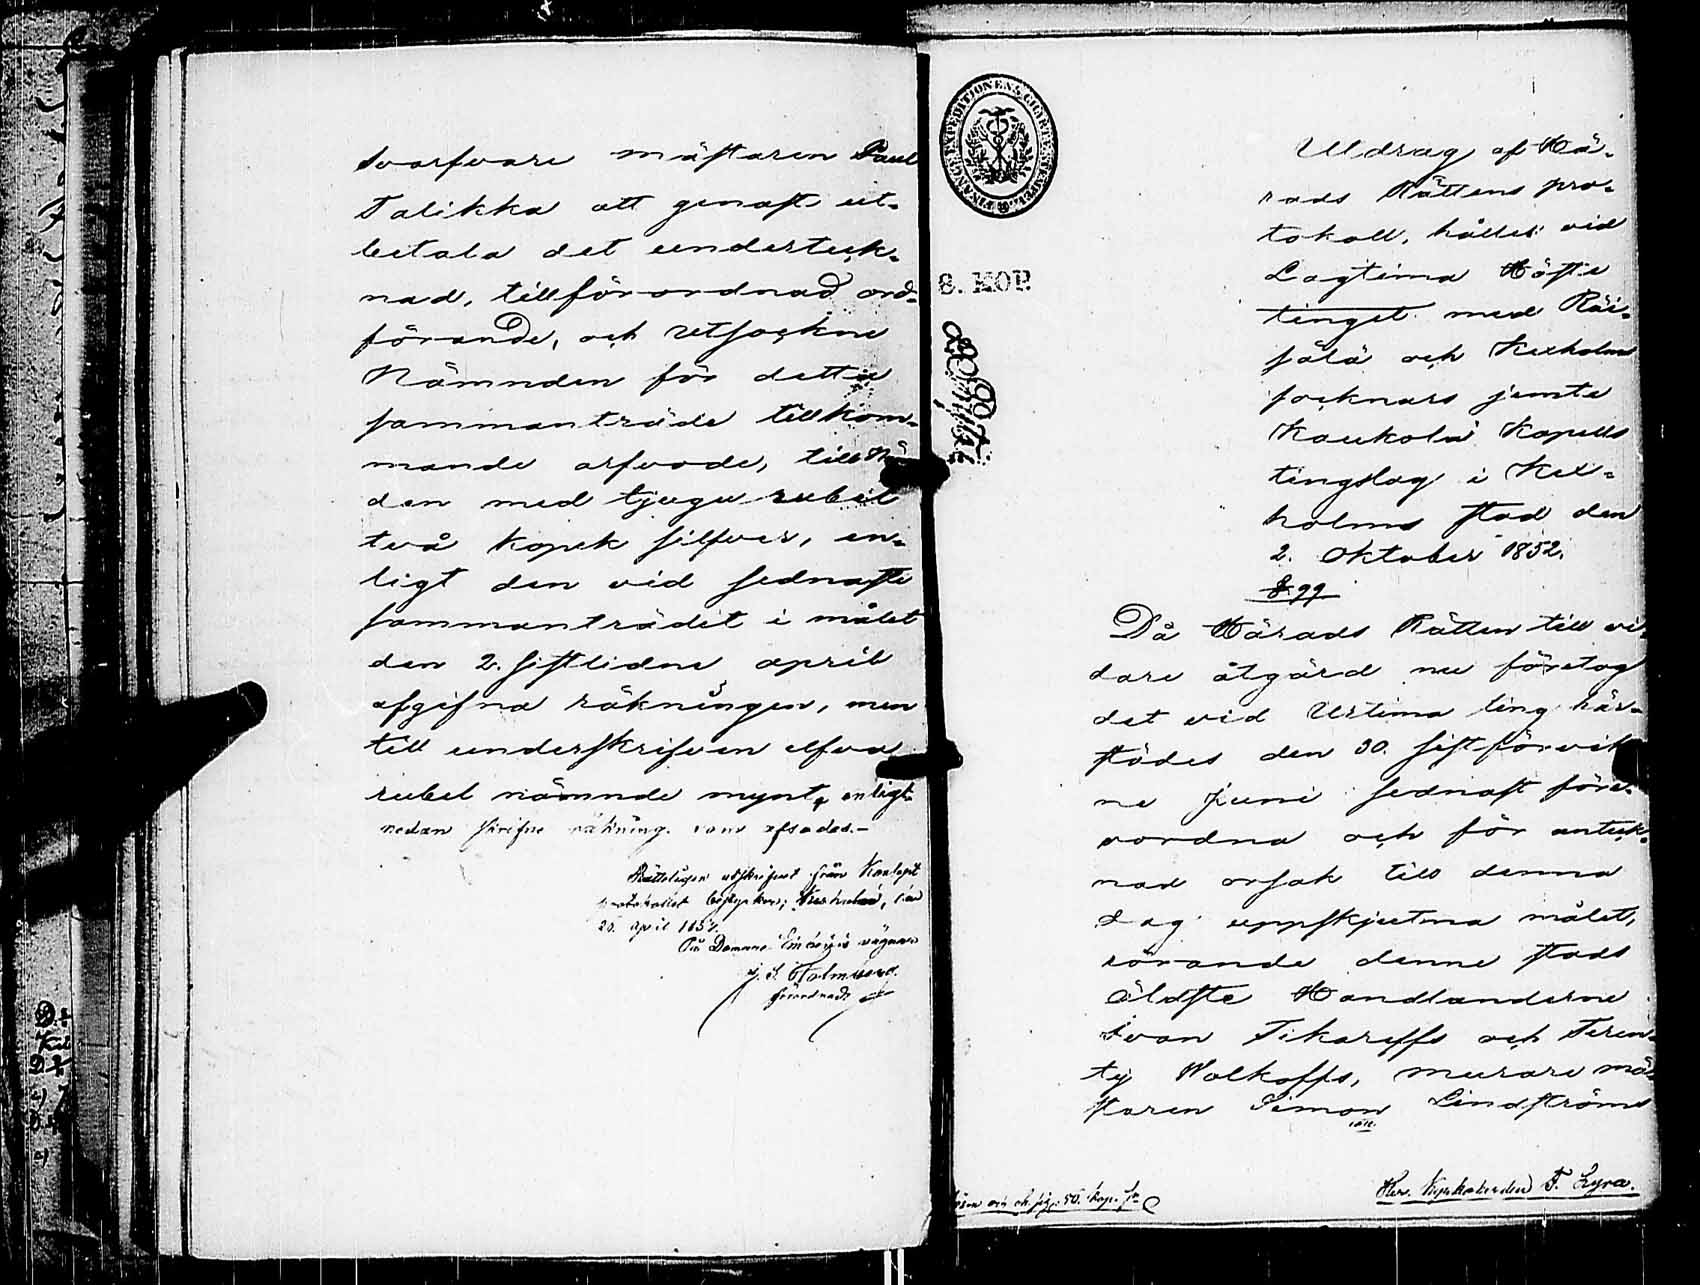 svarfvare mästaren Paul
Talikka att genast ut-
betala det underteck-
nad, tillförordnad ord-
förande, och utsockne
Nämnden för detta
sammanträde tillkom-
mande arfvode, till Nä
den med tjugu rubel
två kopek silfver, en-
ligt den vid sednaste
sammanträdet i målet
den 2. sistlidne april
afgifna räkningen, men
till underskrifven elfva
rubel nämnde mynt, enligt
nedan skrifne räkning. som afsades.-
Rätteligen utskrifvet från Koncept
protokollet betygkar; Kexholm, den
26. april 1854.
På Domare Embetets vägnar
J. S. Holmberg.
förordnad.
FINANCE EXPEDITIONENS CHARTE STEMPEL
8. KOP.
Utdrag af Hä-
rads Rättens pro-
tokoll, hållet vid
Lagtima Höste
tinget med Räi-
sälä och Kexholms
socknars jemte
Kaukola Kapells
tingslag i Kex-
holms stad den
2. Oktober 1852.
§ 99
Då Härads Rätten till vi-
dare åtgärd nu företog
det vid Urtima ting här-
städes den 30. sistförvik
ne Juni sednast före-
vordna och för anteck-
nad orsak till denna
dag uppskjutna målet,
rörande denne stads
äldste Handlanderne
Ivan Tikareffs och Teren-
tij Wolkoffs, murare mä-
staren Simon Lindströms
Herr Vicekaleruden T. Zyra.
50. kop. S:r